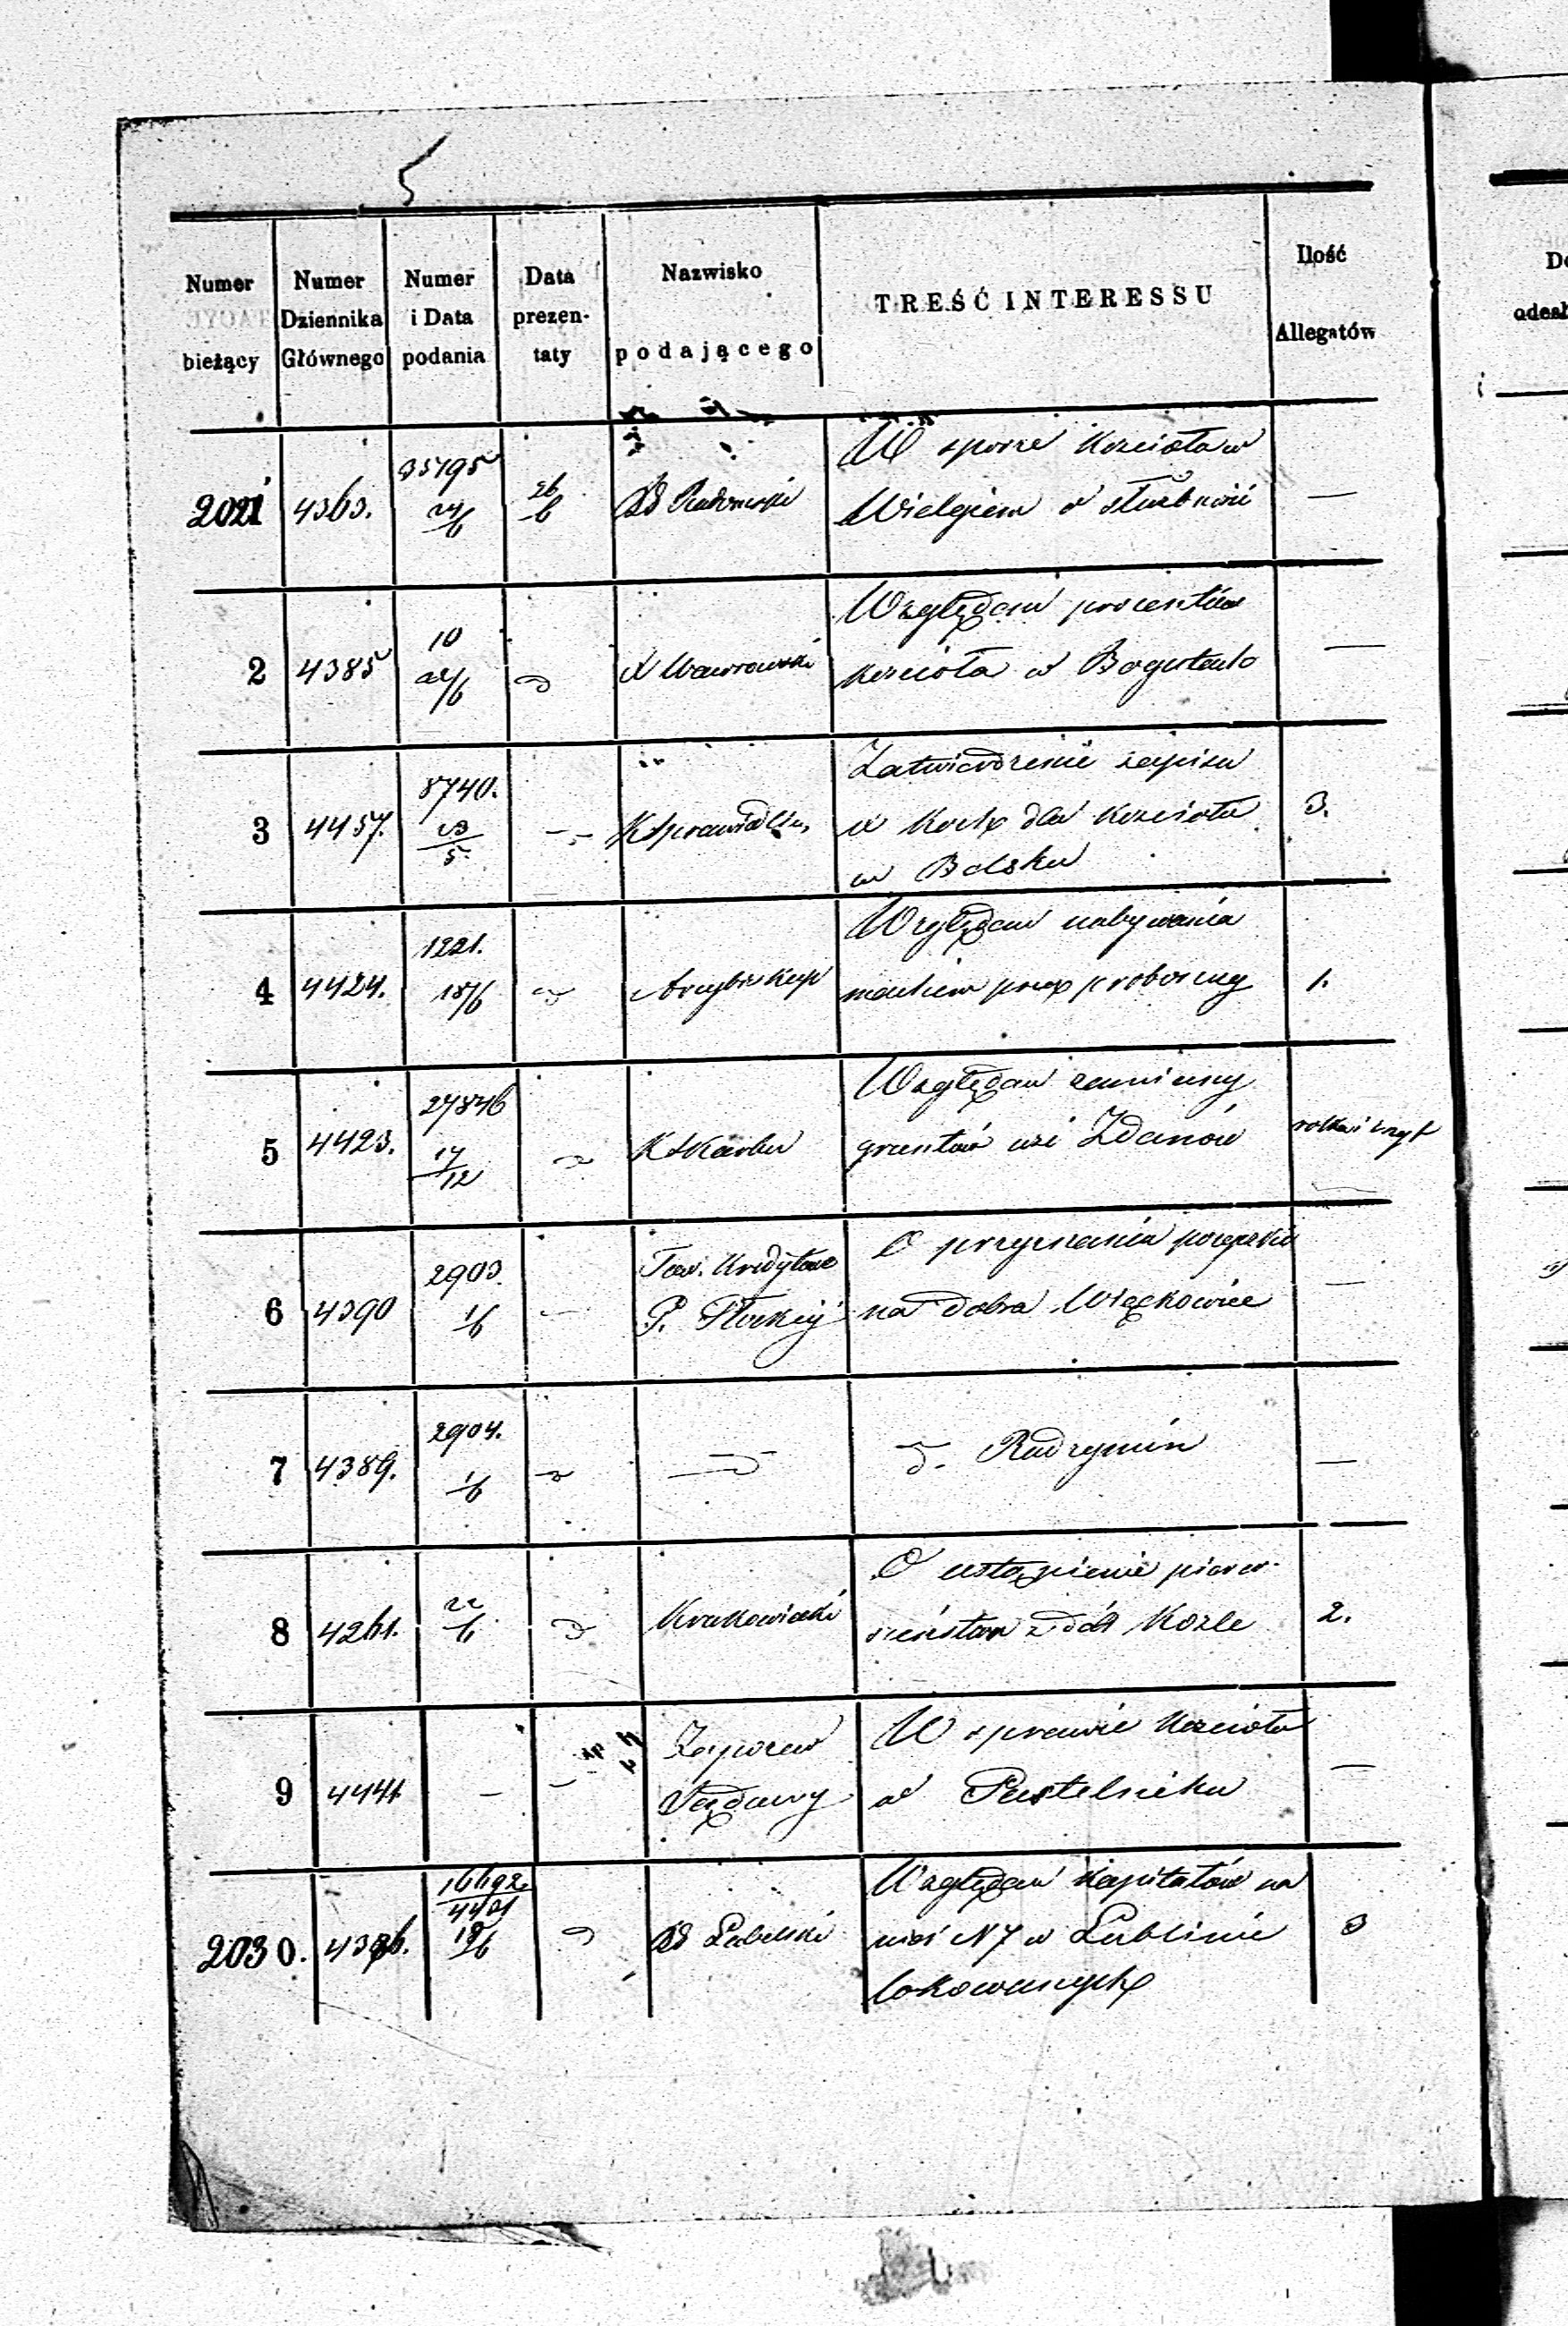 5
Numer bieżący
Numer Dziennika Głównego
Numer i Data podania
Data prezen-taty
Nazwisko podającego
TREŚĆ INTERESSU
Ilość Allegatów
2021 4363. 35195 24/6 26/6 Rd Radomski W sporze Kościoła w —
Wielgiem o służbność
2 4385 10 22/6 d X Wawrowski Względem procentów —
Kościoła w Bogu
3 4457. 8740. 23/5 — K Sprawiedliw. Zatwierdzenie zapisu 3.
w dla Kościoła
w Belsku
4 4424. 1221. 18/6 d Arcybiskup Względem nabywania 1.
przez proboszczy
5 4423. 27846 17/12 d K Skarbu Względem zamiany
gruntów wsi Zdanów
6 4390 2903. 1/6 — Tow. Kredytowe O przyznania pożyczki —
P. Płockiej na dobra Więckowice
7 4389. 2904. 1/6 d — d — d. Radzymin —
8 4261. 22/6 d Krakowiecki O ustąpienie pierw- 2.
szeństwa z dóbr Kozle
9 4441 — — Zapozew W sprawie Kościoła —
Sądowy w Pustelniku
2030. 4386. 16692/4401 18/26 d Rd Lubelski Względem Kapitałów na 3
N 7 w Lublinie
lokowanych